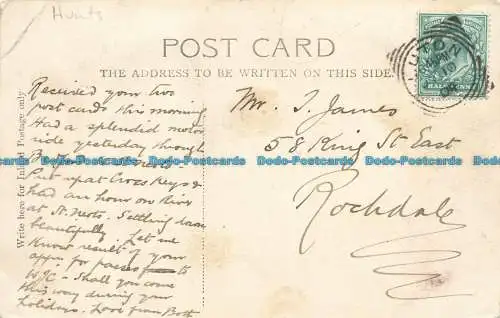 Hunts
POST CARD
THE ADDRESS TO BE WRITTEN ON THIS SIDE.
Write here for Inland Postage only
Received your two
post cards this morning
Had a splendid motor
ride yesterday through
Put up at Cross Keys &
had an hour on River
at St. Neots. Settling down
beautifully. Let me
know result of your
appn for passes to
WJC - Shall you come
this way during your
holidays. Love from Both
Mr. J. James
58 King St East
Rochdale
LUTON
HALFPENNY
Postcards